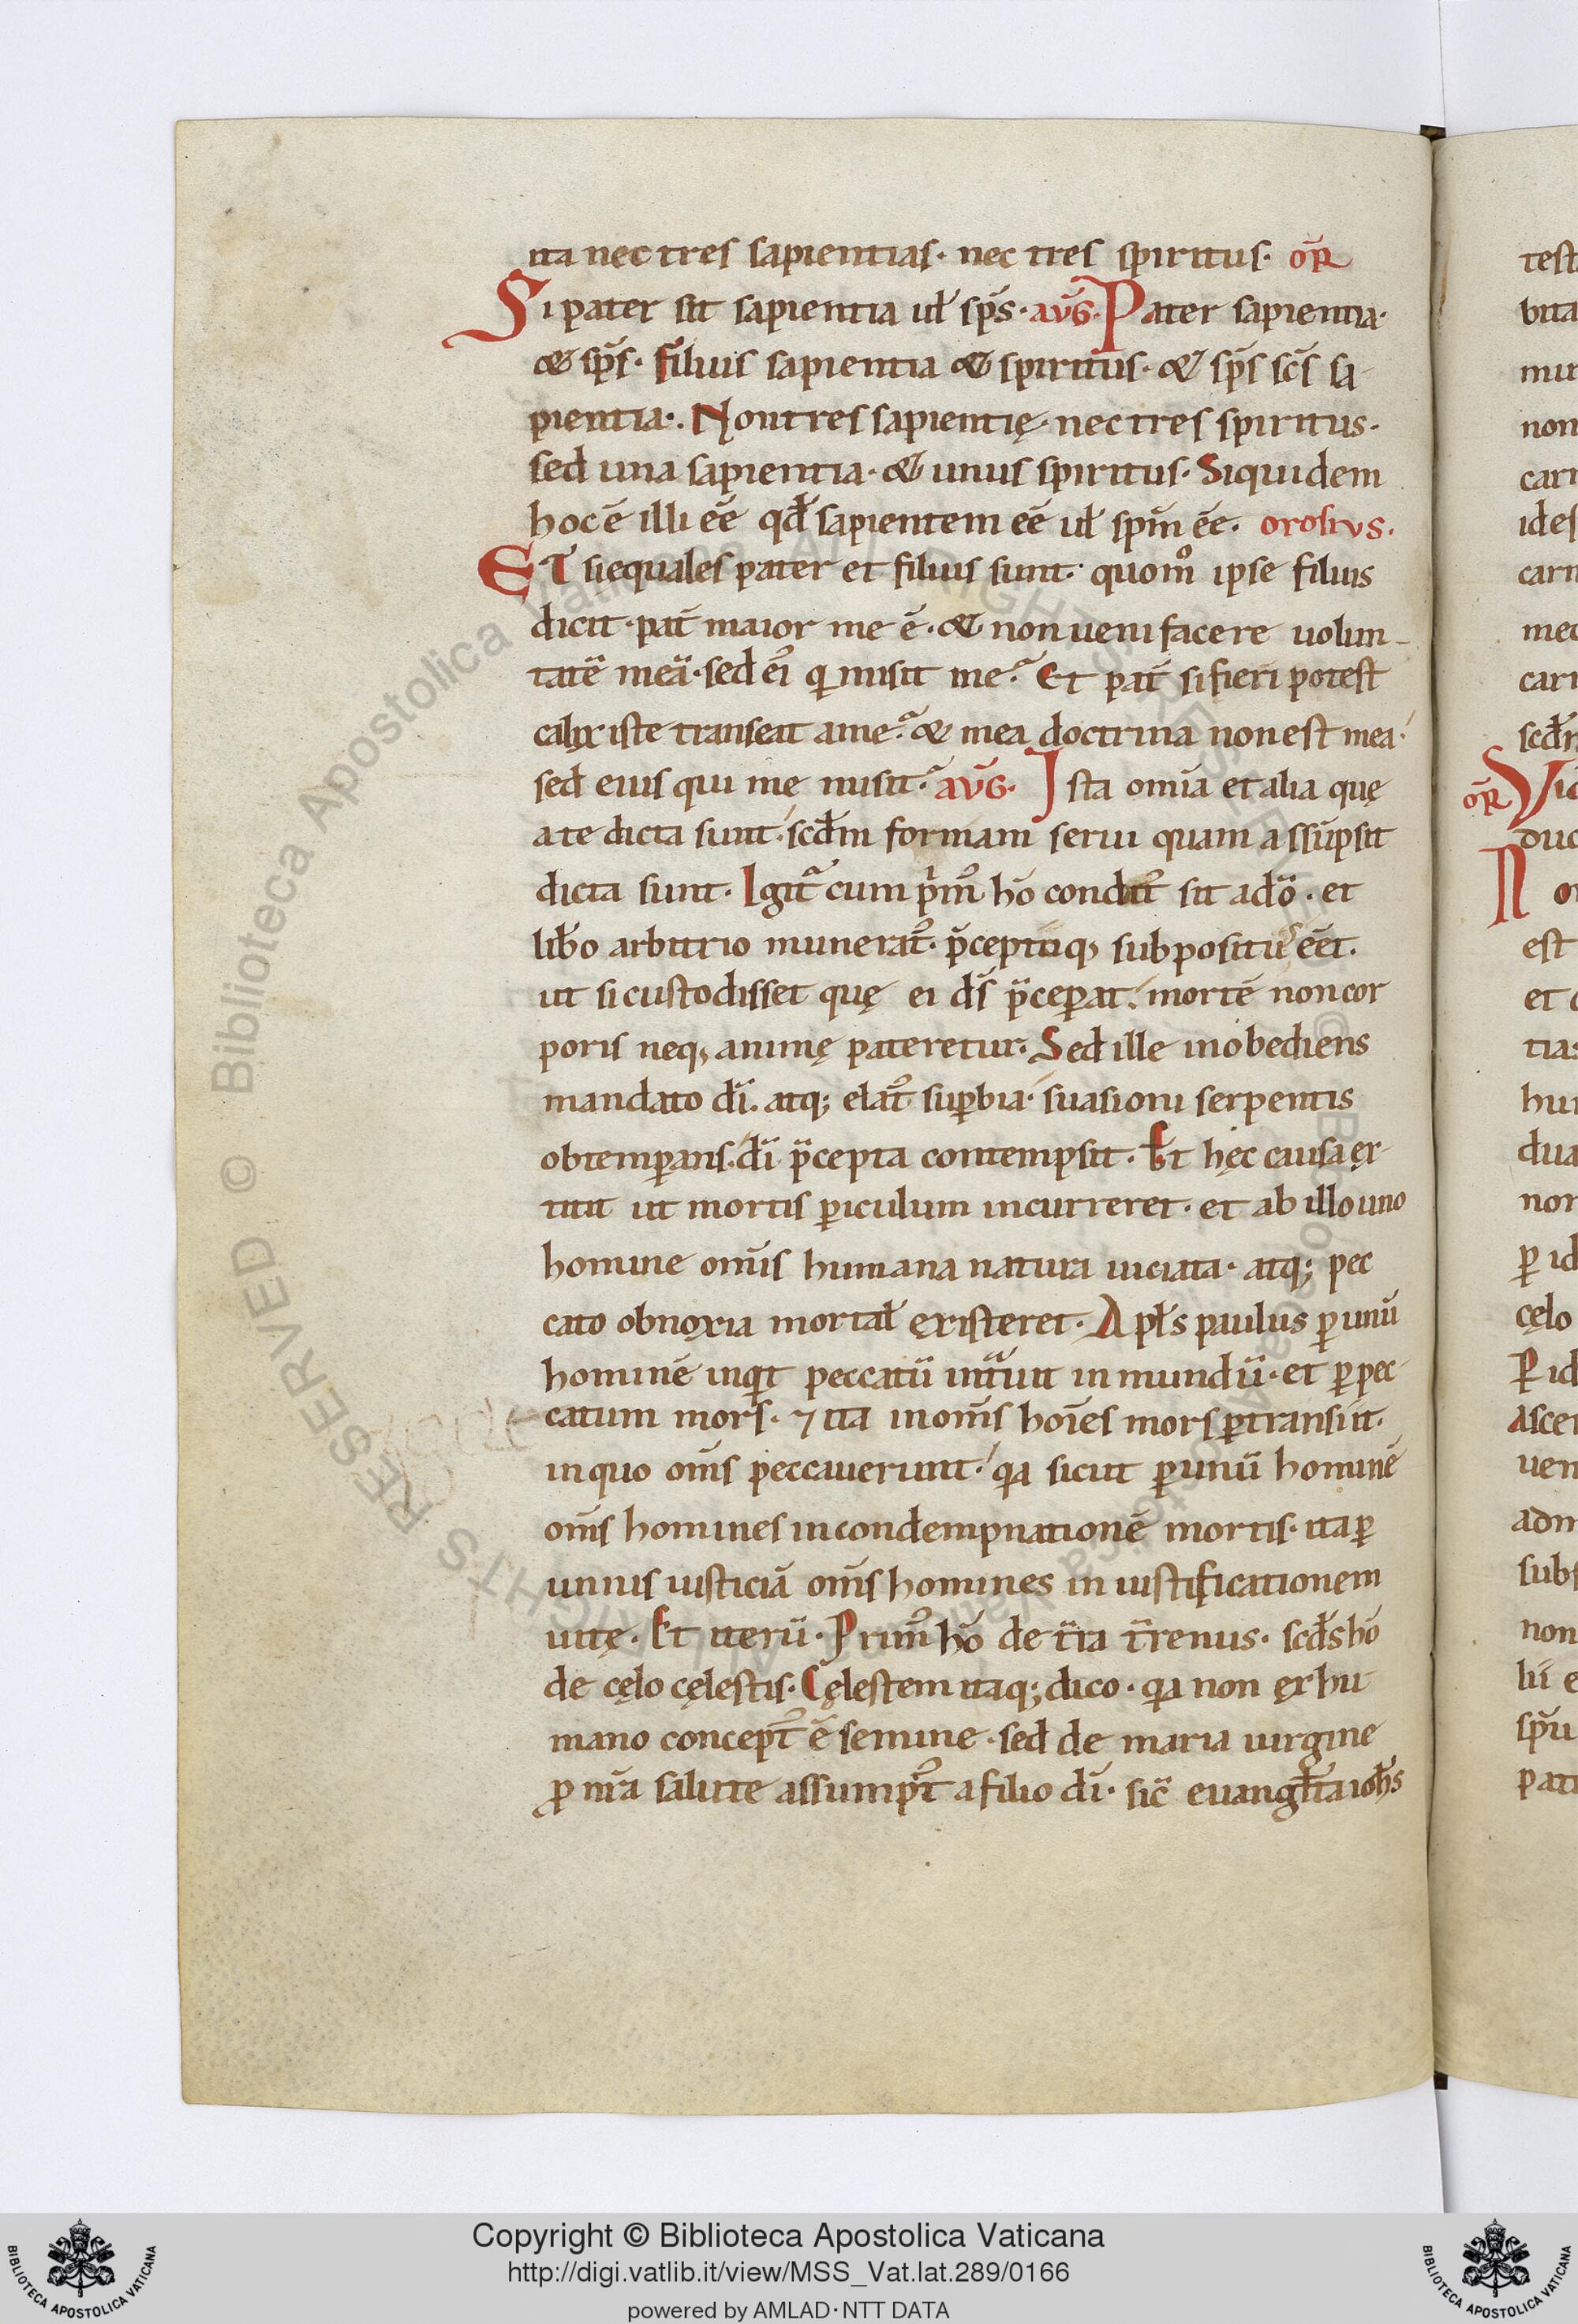 ita nec tres sapientias· nec tres spiritus· oR̄
Si pater sit sapientia ul̄ sp̄s· aūG· Pater sapientia·
& sp̄s· filius sapientia & spiritus· & sp̄s sc̄s sa-
pientia·. Non tres sapientię· nec tres spiritus·
sed una sapientia· & unus spiritus· Siquidem
hoc ē illi eē qđ sapientem eē ul̄ sp̄m eē· orosius·
ET si equales pater et filius sunt· quom̊ ipse filius
dicit· pat̄ maior me ē· & non ueni facere uolun-
tatē meā· sed ei᷒ qi misit me· Et pat̄ si fieri potest
calix iste transeat a me· & mea doctrina non est mea·
sed eius qui me misit· aūG· Ista om̄ia et alia quę
a te dicta sunt· scđm formam serui quam assūpsit
dicta sunt· Igit̄ cum p̄m᷒ hō condit᷒ sit a dō· et
lib̄o arbitrio munerat᷒· p̄ceptiq; subpositus eēt·
ut si custodisset quę ei d̄s p̄ceꝑat· mortē non cor
poris neq; animę pateretur· Sed ille inobediens
mandato dī· atq; elat᷒ suꝑbia· suasioni serpentis
obtemꝑans· dī p̄cepta contempsit· Et hęc causa ex-
titit ut mortis ꝑiculum incurreret· et ab illo uno
homine om̄is humana natura uiciata· atq; pec
cato obnoxia mortal̄ existeret· Apl̄s paulus ꝑ unū
hominē inqit peccatū int̄uit in mundū· et ꝑ pec-
catum mors· ⁊ ita in om̄s hoīes mors ꝑtransiit·
in quo om̄s peccauerunt· qa sicut ꝑ unū hominē
om̄s homines in condempnationē mortis· ita ꝑ
unius iusticiā om̄s homines in iustificationem
uitę· Et iterū· Prim᷒ hō de t̄ra t̄renus· scđs hō
de cęlo cęlestis· Cęlestem itaq; dico· qa non ex hu-
mano concept᷒ ē semine· sed de maria uirgine
ꝓ nr̄a salute assumpt᷒ a filio dī· sic̄ euangl̄ista ioħs
test
bita
mun
non
carn
ides
carn
med
carn
scđm
oR̄ Vid
duc
No
est
et c
tias
hum
dua
non
ꝑ id
cęlo
Ꝑ id
Ascen
uen
adm
subs
non
lii e
sp̄u
pat
© Biblioteca Apostolica Vaticana ALL RIGHTS RESERVED
© Biblioteca Apostolica Vaticana ALL RIGHTS RESERVED
Copyright © Biblioteca Apostolica Vaticana
http://digi.vatlib.it/view/MSS_Vat.lat.289/0166
powered by AMLAD·NTT DATA
BIBLIOTECA APOSTOLICA VATICANA
BIBLIOTECA APOSTOLICA VATICANA